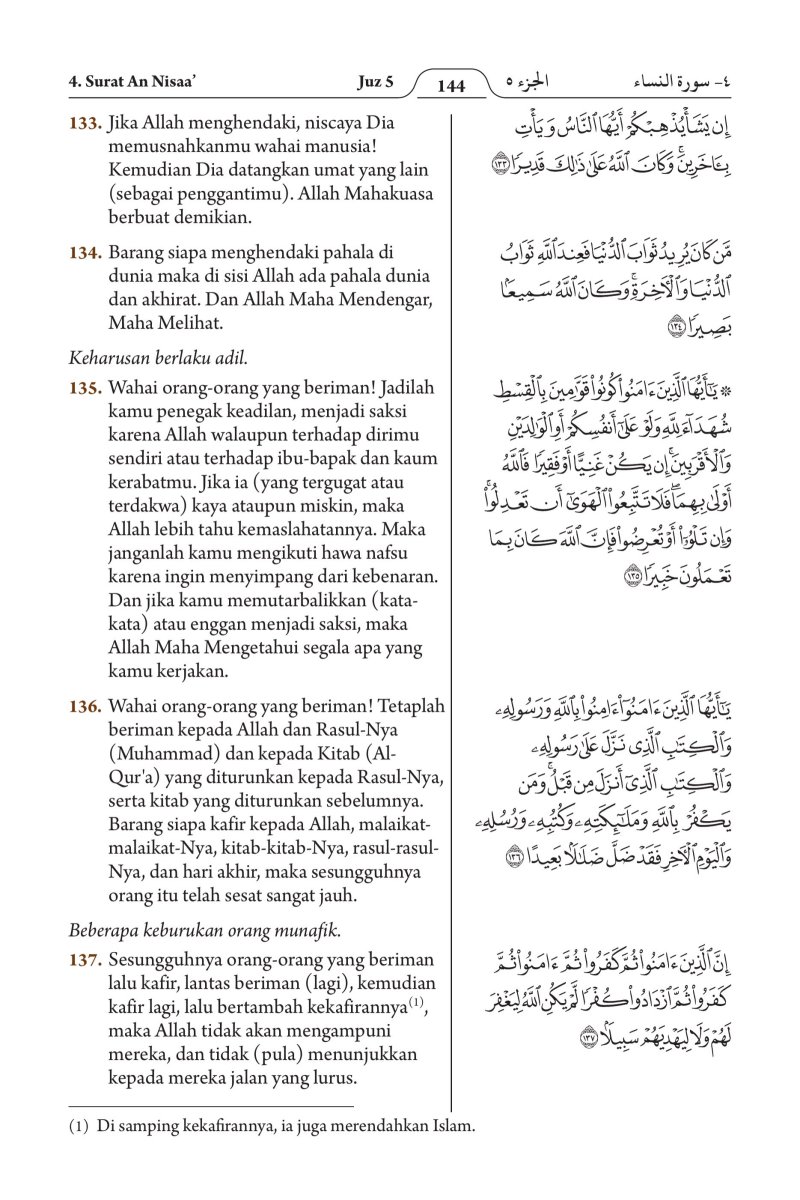 4. Surat An Nisaa’ Juz 5 144 الجزء ٥ ٤- سورة النساء
133. Jika Allah menghendaki, niscaya Dia
memusnahkanmu wahai manusia!
Kemudian Dia datangkan umat yang lain
(sebagai penggantimu). Allah Mahakuasa
berbuat demikian.
134. Barang siapa menghendaki pahala di
dunia maka di sisi Allah ada pahala dunia
dan akhirat. Dan Allah Maha Mendengar,
Maha Melihat.
Keharusan berlaku adil.
135. Wahai orang-orang yang beriman! Jadilah
kamu penegak keadilan, menjadi saksi
karena Allah walaupun terhadap dirimu
sendiri atau terhadap ibu-bapak dan kaum
kerabatmu. Jika ia (yang tergugat atau
terdakwa) kaya ataupun miskin, maka
Allah lebih tahu kemaslahatannya. Maka
janganlah kamu mengikuti hawa nafsu
karena ingin menyimpang dari kebenaran.
Dan jika kamu memutarbalikkan (kata-
kata) atau enggan menjadi saksi, maka
Allah Maha Mengetahui segala apa yang
kamu kerjakan.
136. Wahai orang-orang yang beriman! Tetaplah
beriman kepada Allah dan Rasul-Nya
(Muhammad) dan kepada Kitab (Al-
Qur'a) yang diturunkan kepada Rasul-Nya,
serta kitab yang diturunkan sebelumnya.
Barang siapa kafir kepada Allah, malaikat-
malaikat-Nya, kitab-kitab-Nya, rasul-rasul-
Nya, dan hari akhir, maka sesungguhnya
orang itu telah sesat sangat jauh.
Beberapa keburukan orang munafik.
137. Sesungguhnya orang-orang yang beriman
lalu kafir, lantas beriman (lagi), kemudian
kafir lagi, lalu bertambah kekafirannya(1),
maka Allah tidak akan mengampuni
mereka, dan tidak (pula) menunjukkan
kepada mereka jalan yang lurus.
إِن يَشَأْ يُذْهِبْكُمْ أَيُّهَا ٱلنَّاسُ وَيَأْتِ
بِـَٔاخَرِينَ ۚ وَكَانَ ٱللَّهُ عَلَىٰ ذَٰلِكَ قَدِيرًا ١٣٣
مَّن كَانَ يُرِيدُ ثَوَابَ ٱلدُّنْيَا فَعِندَ ٱللَّهِ ثَوَابُ
ٱلدُّنْيَا وَٱلْـَٔاخِرَةِ ۚ وَكَانَ ٱللَّهُ سَمِيعًۢا
بَصِيرًا ١٣٤
۞ يَـٰٓأَيُّهَا ٱلَّذِينَ ءَامَنُوا۟ كُونُوا۟ قَوَّٰمِينَ بِٱلْقِسْطِ
شُهَدَآءَ لِلَّهِ وَلَوْ عَلَىٰٓ أَنفُسِكُمْ أَوِ ٱلْوَٰلِدَيْنِ
وَٱلْأَقْرَبِينَ ۚ إِن يَكُنْ غَنِيًّا أَوْ فَقِيرًا فَٱللَّهُ
أَوْلَىٰ بِهِمَا ۖ فَلَا تَتَّبِعُوا۟ ٱلْهَوَىٰٓ أَن تَعْدِلُوا۟ ۚ
وَإِن تَلْوُۥٓا۟ أَوْ تُعْرِضُوا۟ فَإِنَّ ٱللَّهَ كَانَ بِمَا
تَعْمَلُونَ خَبِيرًا ١٣٥
يَـٰٓأَيُّهَا ٱلَّذِينَ ءَامَنُوٓا۟ ءَامِنُوا۟ بِٱللَّهِ وَرَسُولِهِۦ
وَٱلْكِتَـٰبِ ٱلَّذِى نَزَّلَ عَلَىٰ رَسُولِهِۦ
وَٱلْكِتَـٰبِ ٱلَّذِىٓ أَنزَلَ مِن قَبْلُ ۚ وَمَن
يَكْفُرْ بِٱللَّهِ وَمَلَـٰٓئِكَتِهِۦ وَكُتُبِهِۦ وَرُسُلِهِۦ
وَٱلْيَوْمِ ٱلْـَٔاخِرِ فَقَدْ ضَلَّ ضَلَـٰلًۢا بَعِيدًا ١٣٦
إِنَّ ٱلَّذِينَ ءَامَنُوا۟ ثُمَّ كَفَرُوا۟ ثُمَّ ءَامَنُوا۟ ثُمَّ
كَفَرُوا۟ ثُمَّ ٱزْدَادُوا۟ كُفْرًا لَّمْ يَكُنِ ٱللَّهُ لِيَغْفِرَ
لَهُمْ وَلَا لِيَهْدِيَهُمْ سَبِيلًۢا ١٣٧
(1) Di samping kekafirannya, ia juga merendahkan Islam.